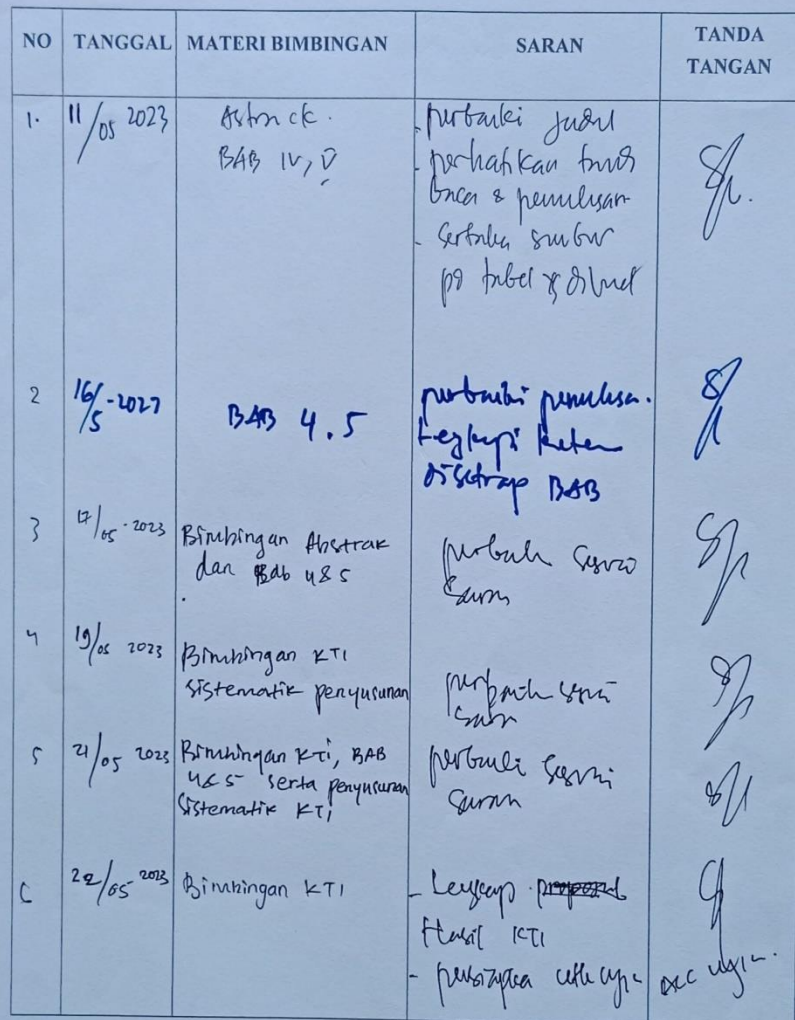 NO TANGGAL MATERI BIMBINGAN SARAN TANDA TANGAN
1. 11/05 2023
BAB IV, V
- perbaiki judul
- perhatikan
baca & penulisan
- sumber
pd tabel yg dibuat
2 16/5-2023 BAB 4.5
perbaiki penulisan.
Lengkapi
disetiap BAB
3 17/05-2023
Bimbingan Abstrak
dan Bab 4&5
sesuai
saran
4 19/05 2023
Bimbingan KTI
sistematik penyusunan
sesuai
5 21/05 2023
Bimbingan KTI, BAB
4&5 serta penyusunan
sistematik KTI
perbaiki sesuai
saran
6 22/05 2023
Bimbingan KTI
- Lengkap
Hasil KTI
-
acc ujian.